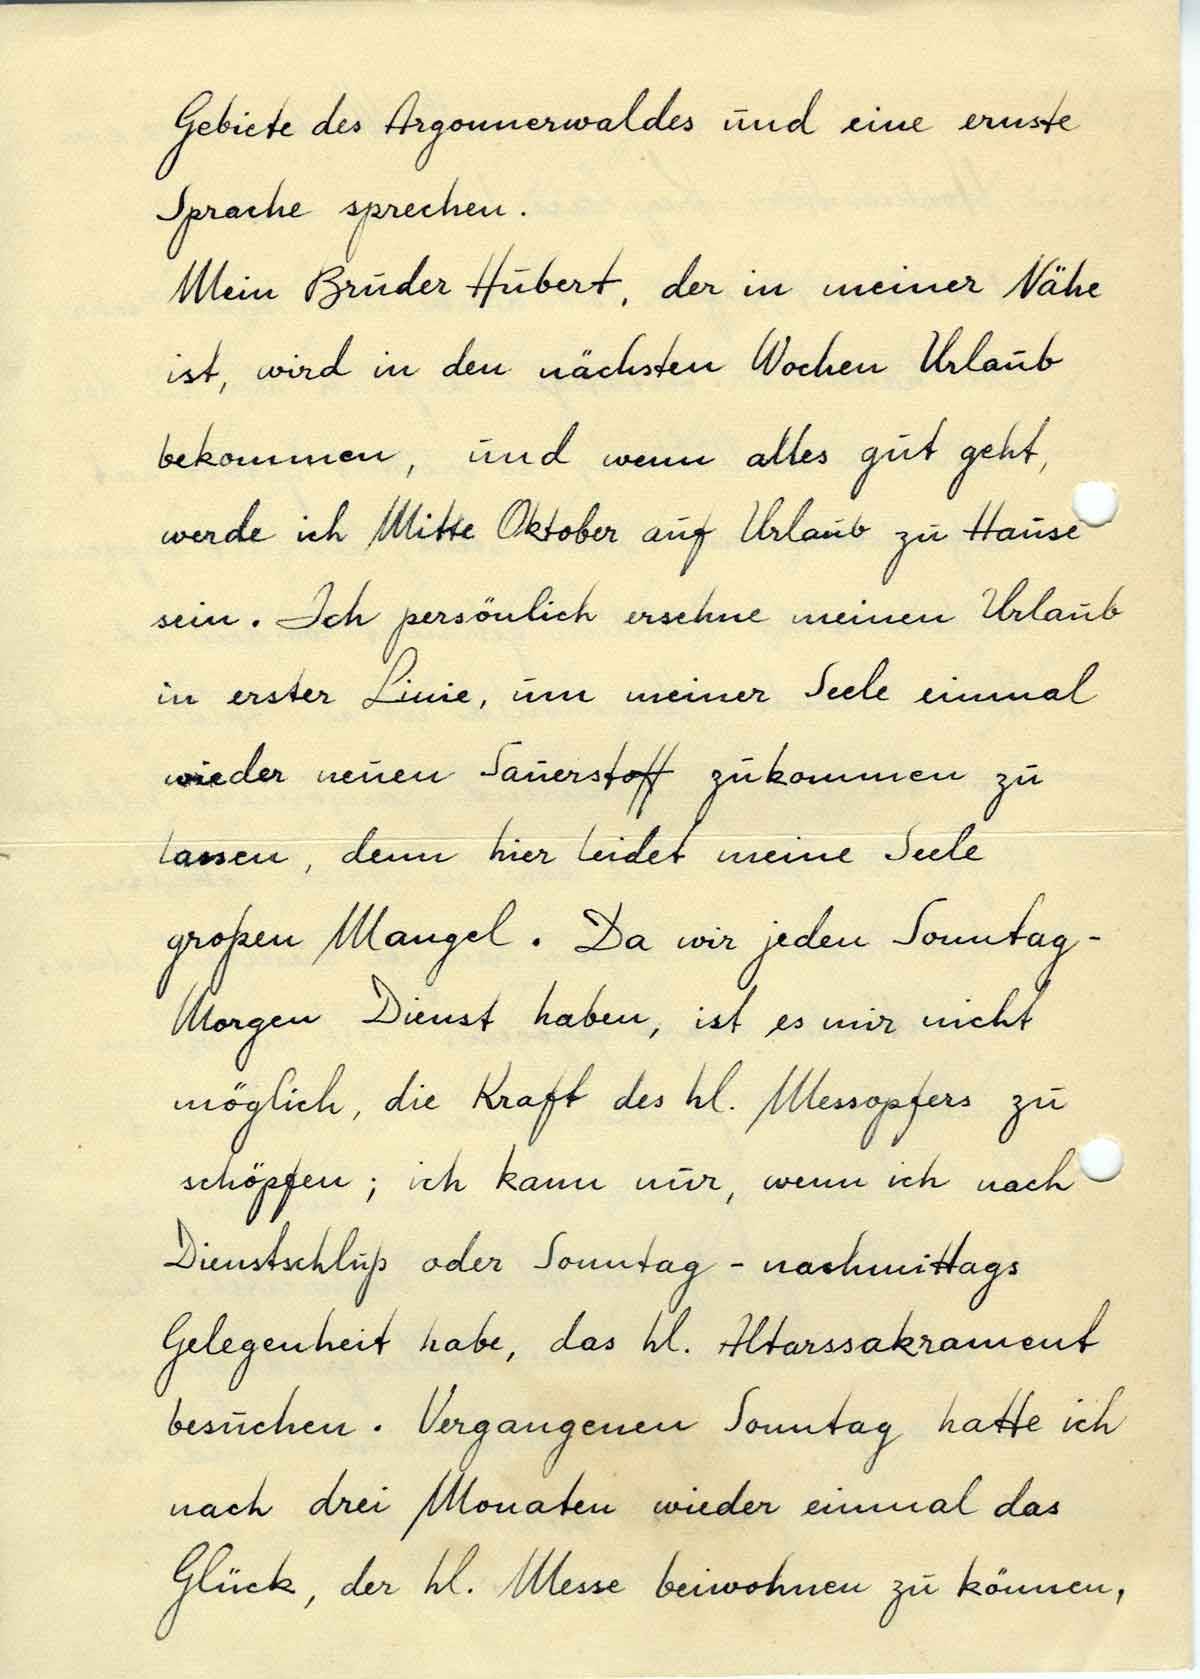 Gebiete des Argonnerwaldes und eine ernste
Sprache sprechen.
Mein Bruder Hubert, der in meiner Nähe
ist, wird in den nächsten Wochen Urlaub
bekommen, und wenn alles gut geht,
werde ich Mitte Oktober auf Urlaub zu Hause
sein. Ich persönlich ersehne meinen Urlaub
in erster Linie, um meiner Seele einmal
wieder neuen Sauerstoff zukommen zu
lassen, denn hier leidet meine Seele
großen Mangel. Da wir jeden Sonntag-
Morgen Dienst haben, ist es mir nicht
möglich, die Kraft des hl. Messopfers zu
schöpfen; ich kann nur, wenn ich nach
Dienstschluß oder Sonntag-nachmittags
Gelegenheit habe, das hl. Altarssakrament
besuchen. Vergangenen Sonntag hatte ich
nach drei Monaten wieder einmal das
Glück, der hl. Messe beiwohnen zu können,